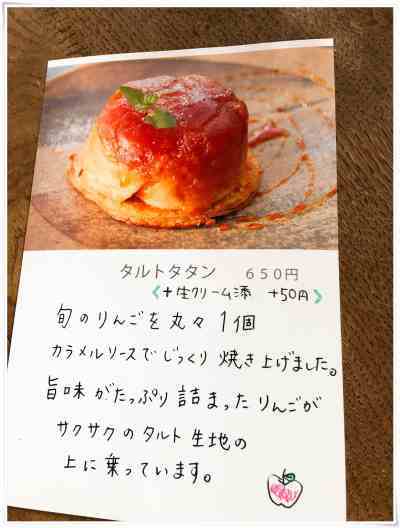 タルトタタン 650円
＋生クリーム添 +50円
旬のりんごを丸々1個
カラメルソースでじっくり焼き上げました。
旨味がたっぷり詰まったりんごが
サクサクのタルト生地の
上に乗っています。